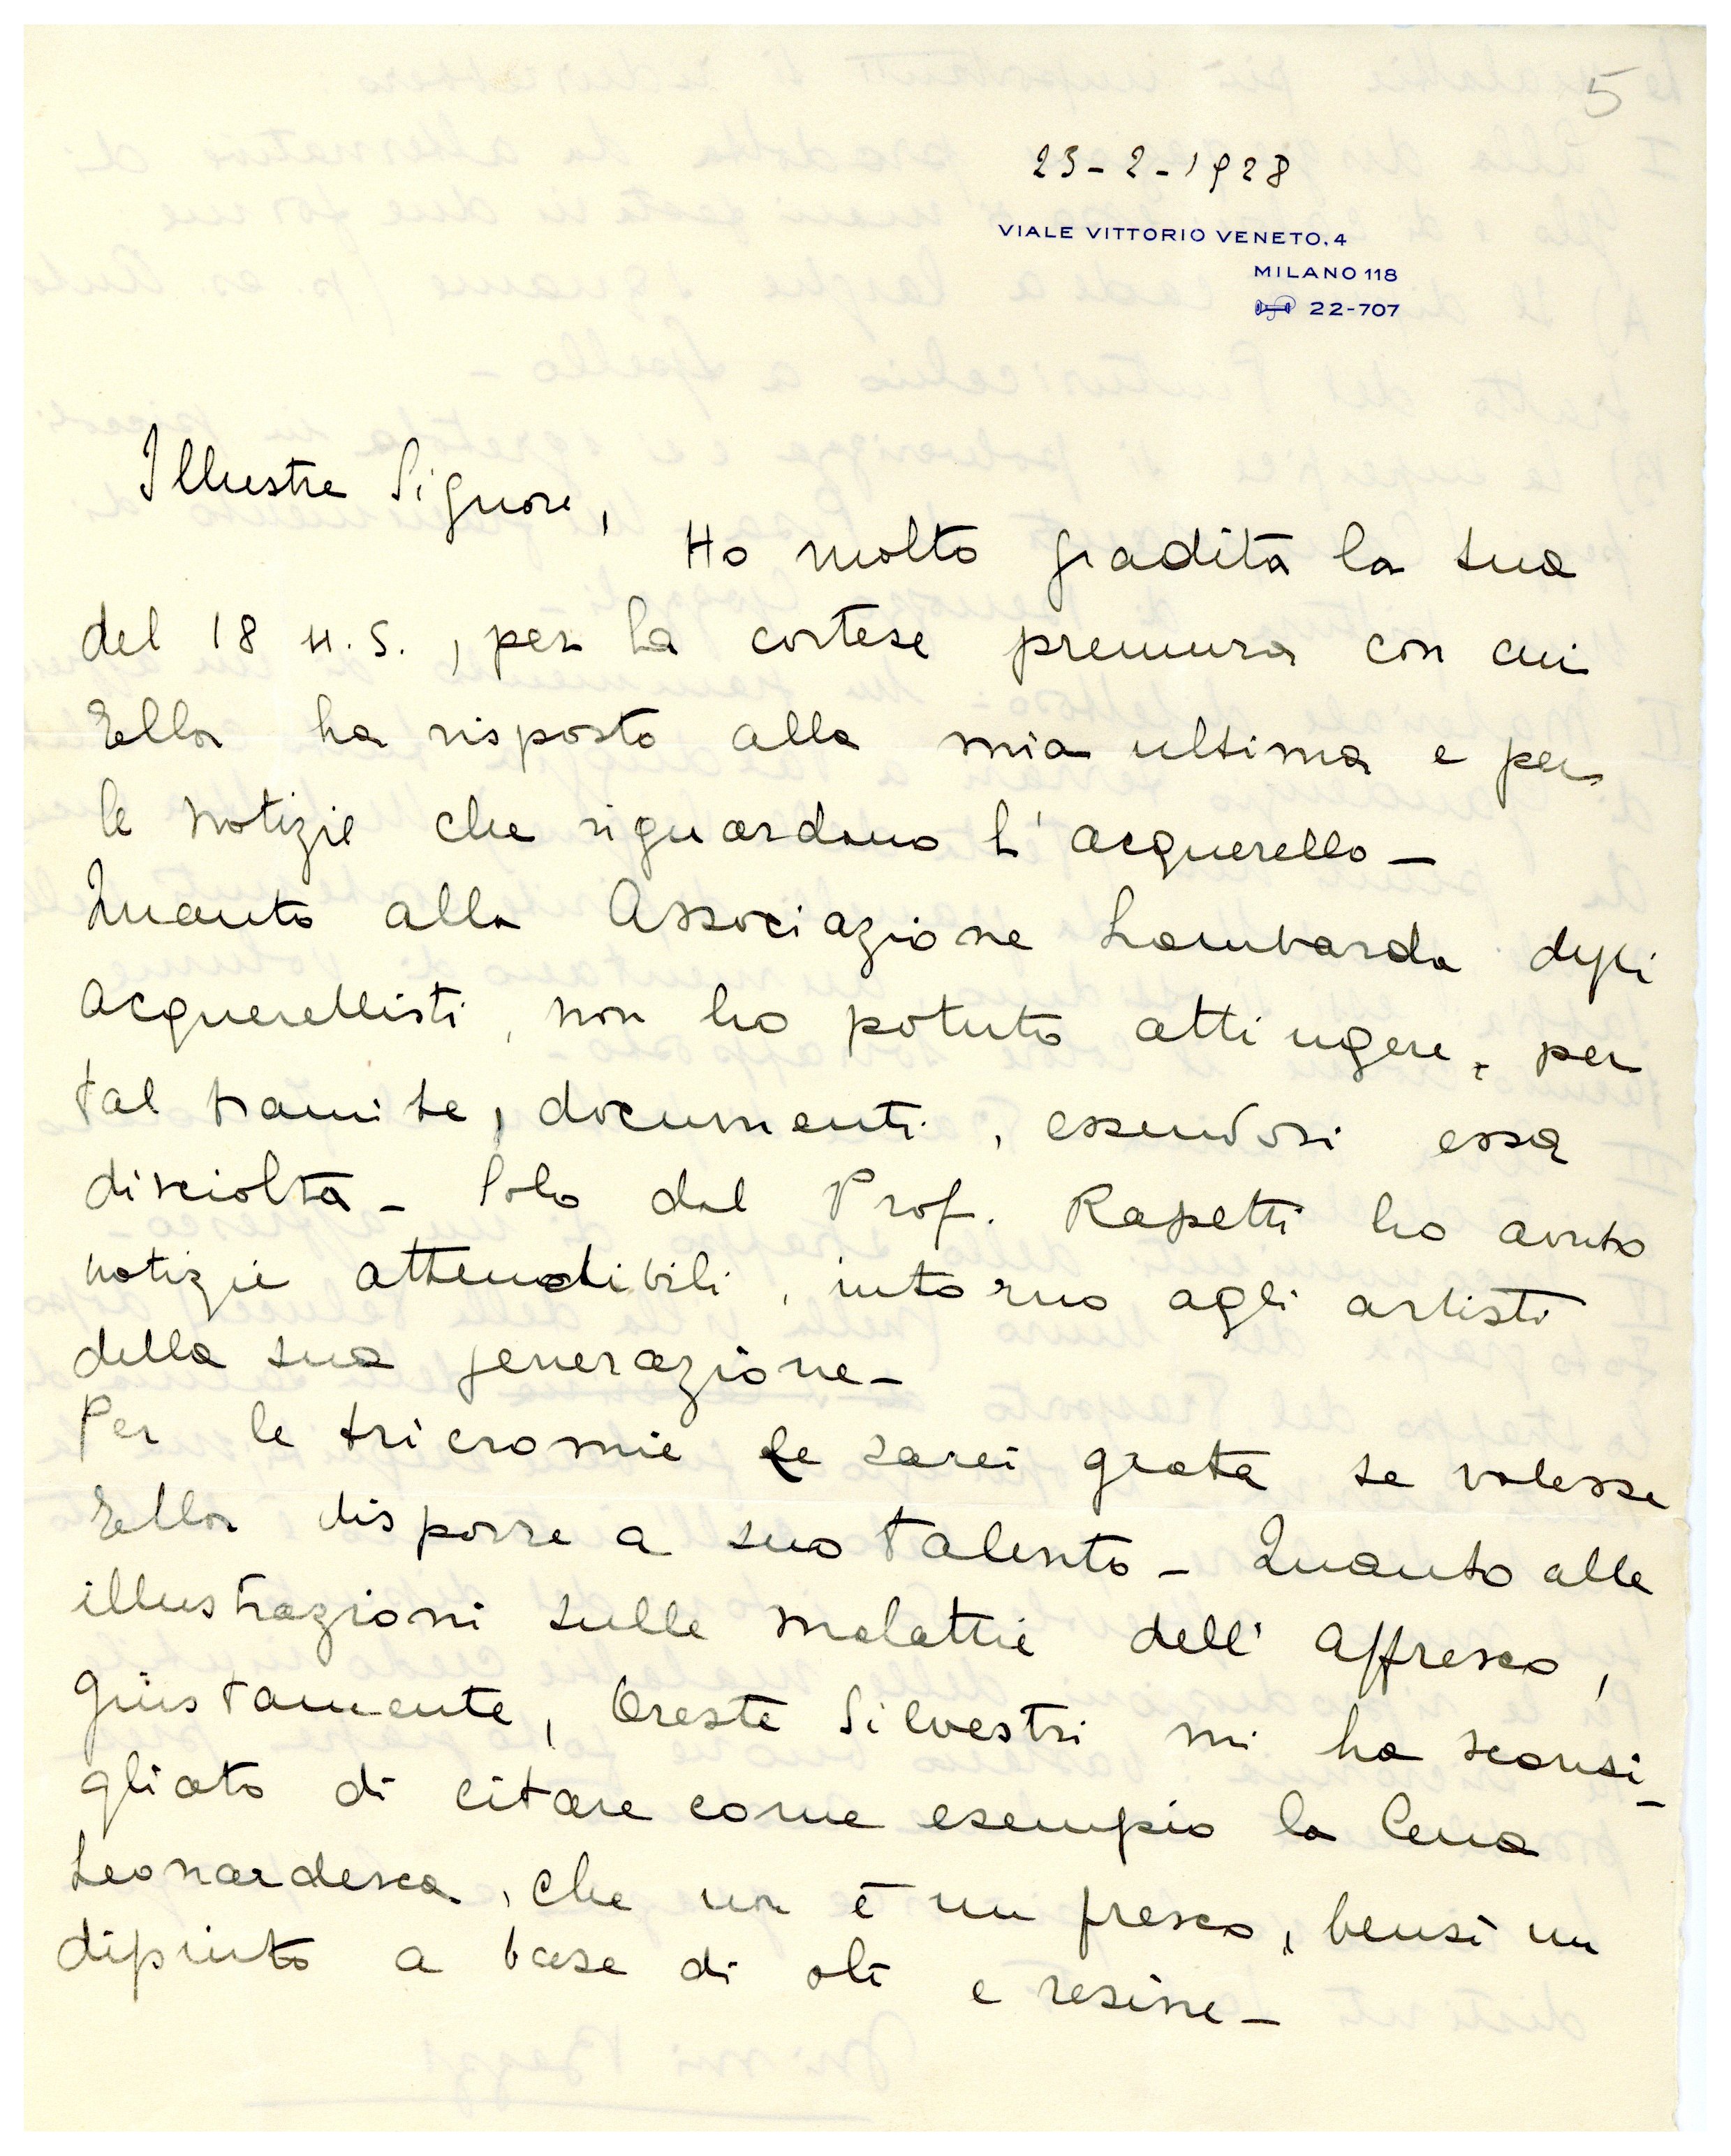 5
23-2-1928
VIALE VITTORIO VENETO, 4
MILANO 118
22-707
Illustre Signore,
Ho molto gradita la sua
del 18 u.s., per la cortese premura con cui
Ella ha risposto alla mia ultima e per
le notizie che riguardano l'acquerello-
Quanto alla Associazione Lombarda degli
acquerellisti, non ho potuto attingere, per
tal tramite, documenti, essendosi essa
disciolta- Solo dal Prof. Rapetti ho avuto
notizie attendibili, intorno agli artisti
della sua generazione-
Per le tricromie Le sarei grata se volesse
Ella disporre a suo talento- Quanto alle
illustrazioni sulle malattie dell'affresco,
giustamente, Oreste Silvestri mi ha sconsi-
gliato di citare come esempio la Cena
Leonardesca, che non è un fresco, bensì un
dipinto a base di olì e resine-